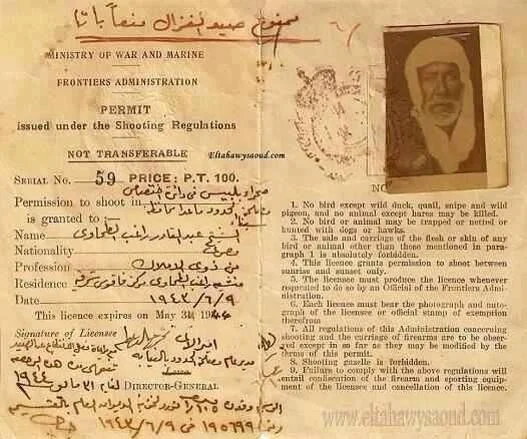 ممنوع صيد الغزال منعاً باتاً
MINISTRY OF WAR AND MARINE
FRONTIERS ADMINISTRATION
PERMIT
issued under the Shooting Regulations
NOT TRANSFERABLE
Eltahawysaoud.com
SERIAL No. 59 PRICE: P.T. 100.
صحراء بلبيس في دائرة اختصاص
Permission to shoot in مصلحة الحدود ماعدا
is granted to:
Name الشيخ عبد القادر راغب الطحاوى
Nationality مصرى
Profession من ذوى الاملاك
Residence راغب الطحاوى مركز فاقوس شرقية
Date ١٩٤٣/٦/٩
This licence expires on May 31st 1944
Signature of Licensee
مدير عام مصلحة الحدود بالنيابة
DIRECTOR-GENERAL
١٩٤٣/٦/٩
NO
1. No bird except wild duck, quail, snipe and wild pigeon, and no animal except hares may be killed.
2. No bird or animal may be trapped or netted or hunted with dogs or hawks.
3. The sale and carriage of the flesh or skin of any bird or animal other than those mentioned in paragraph 1 is absolutely forbidden.
4. This licence grants permission to shoot between sunrise and sunset only.
5. The licensee must produce the licence whenever requested to do so by an Official of the Frontiers Administration.
6. Each licence must bear the photograph and autograph of the licensee or official stamp of exemption therefrom
7. All regulations of this Administration concerning shooting and the carriage of firearms are to be observed except in so far as they may be modified by the terms of this permit.
8. Shooting gazelle is forbidden.
9. Failure to comply with the above regulations will entail confiscation of the firearm and sporting equipment of the licensee and cancellation of this licence.
www.eltahawysaoud.com